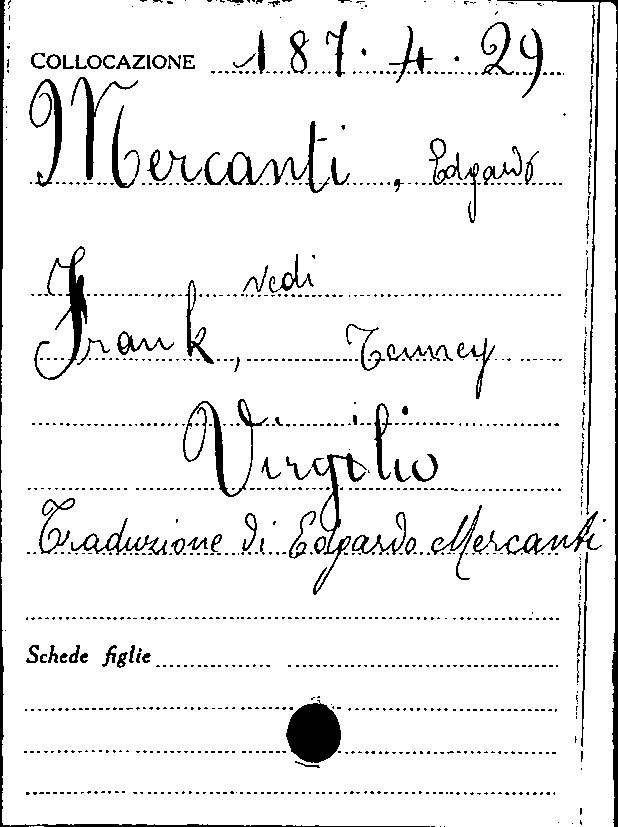 COLLOCAZIONE 187. 4. 29
Mercanti, Edgardo
vedi
Frank, Tenney
Virgilio
Traduzione di Edgardo Mercanti
Schede figlie